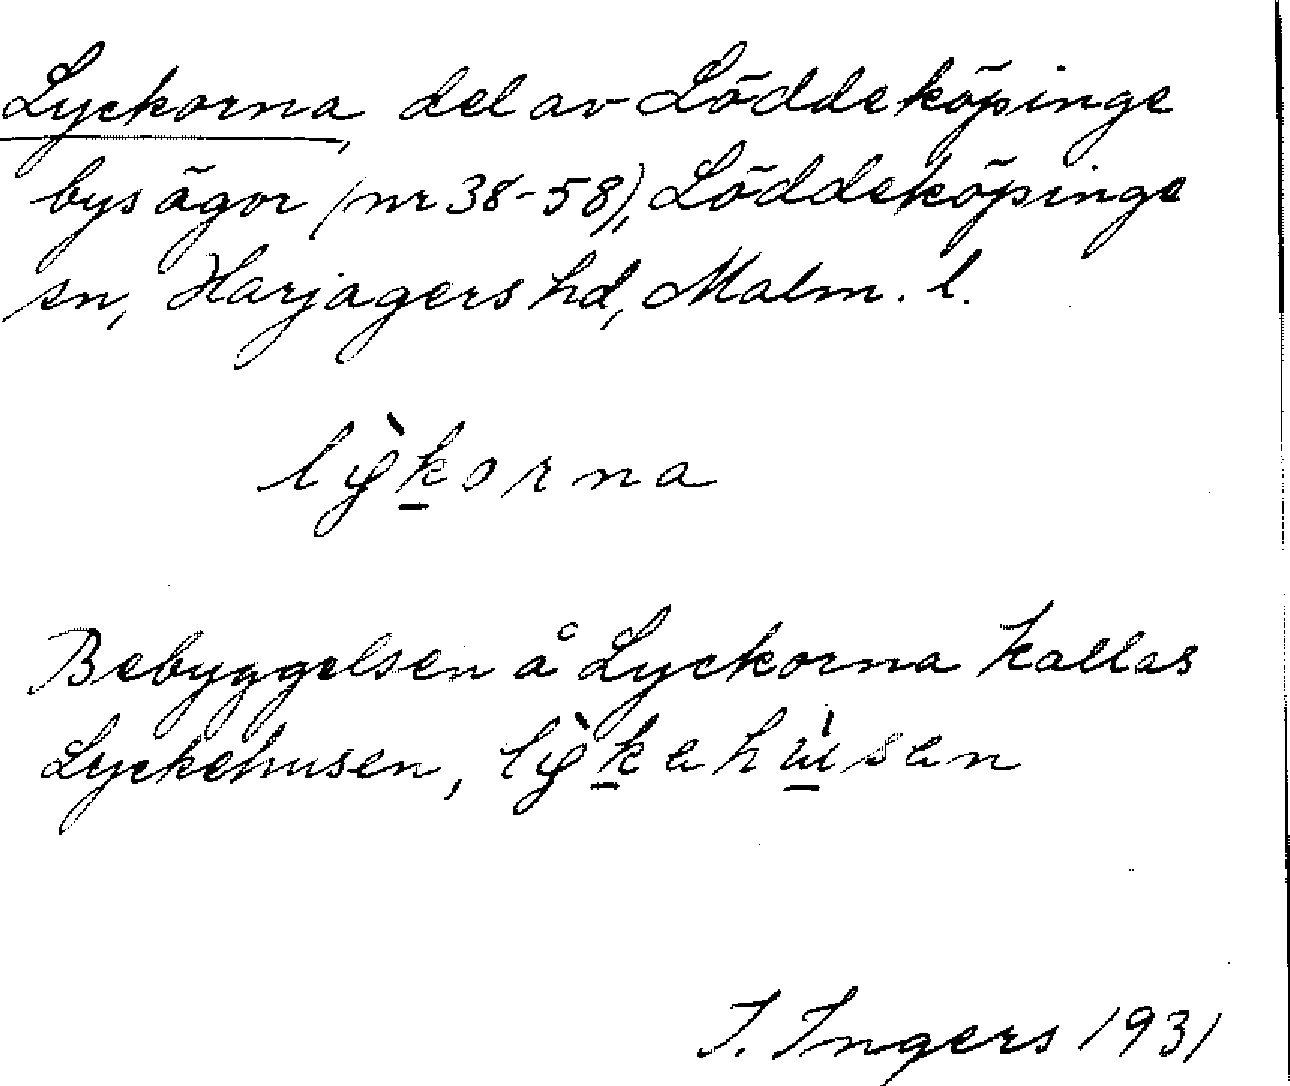 Lyckorna, del av Löddeköpinge
bys ägor (nr 38-58), Löddeköpinge
sn, Harjagers hd, Malm. l.
lỳk̲orna
Bebyggelsen å Lyckorna kallas
Lyckehusen, lỳk̲ehú̲sen
I. Ingers 1931